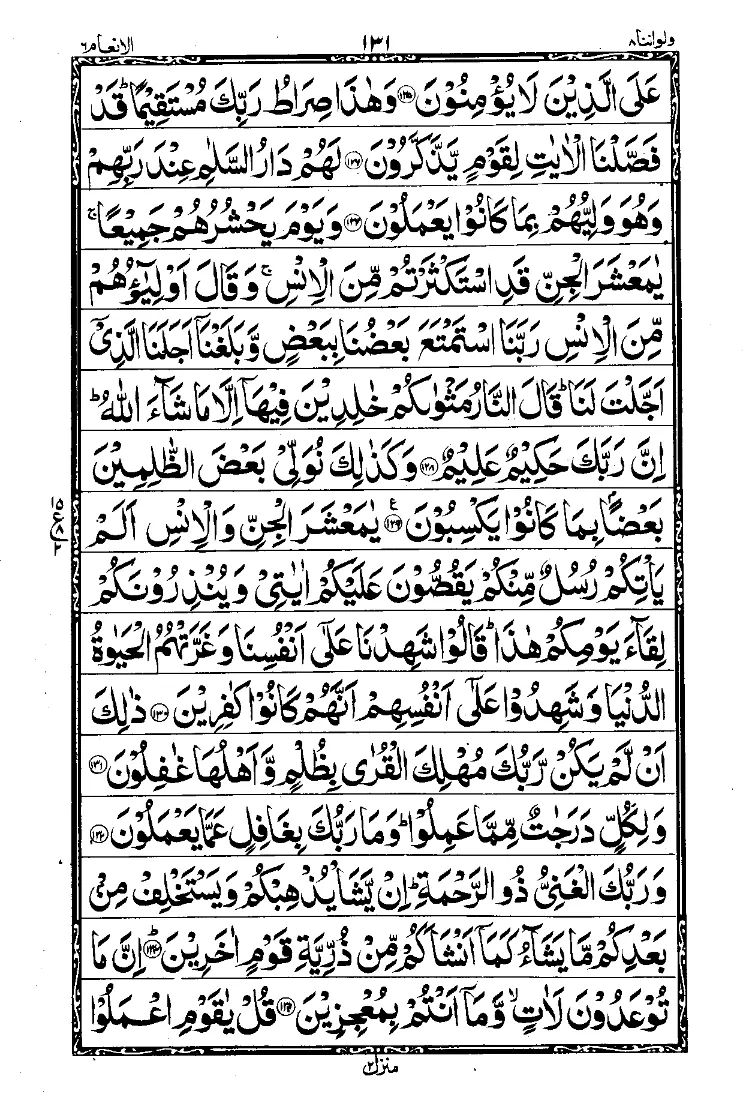 ولواننا٨ ١٣١ الانعام٦
عَلَى الَّذِيْنَ لَا يُؤْمِنُوْنَ ﴿۱۲۵﴾ وَهٰذَا صِرَاطُ رَبِّكَ مُسْتَقِيْمًا ؕ قَدْ
فَصَّلْنَا الْاٰيٰتِ لِقَوْمٍ يَّذَّكَّرُوْنَ ﴿۱۲۶﴾ لَهُمْ دَارُ السَّلٰمِ عِنْدَ رَبِّهِمْ
وَهُوَ وَلِيُّهُمْ بِمَا كَانُوْا يَعْمَلُوْنَ ﴿۱۲۷﴾ وَيَوْمَ يَحْشُرُهُمْ جَمِيْعًا ۚ
يٰمَعْشَرَ الْجِنِّ قَدِ اسْتَكْثَرْتُمْ مِّنَ الْاِنْسِ ۚ وَقَالَ اَوْلِيٰٓؤُهُمْ
مِّنَ الْاِنْسِ رَبَّنَا اسْتَمْتَعَ بَعْضُنَا بِبَعْضٍ وَّبَلَغْنَاۤ اَجَلَنَا الَّذِيْۤ
اَجَّلْتَ لَنَا ؕ قَالَ النَّارُ مَثْوٰىكُمْ خٰلِدِيْنَ فِيْهَاۤ اِلَّا مَا شَآءَ اللّٰهُ ؕ
اِنَّ رَبَّكَ حَكِيْمٌ عَلِيْمٌ ﴿۱۲۸﴾ وَكَذٰلِكَ نُوَلِّيْ بَعْضَ الظّٰلِمِيْنَ
بَعْضًۢا بِمَا كَانُوْا يَكْسِبُوْنَ ﴿۱۲۹﴾ ع يٰمَعْشَرَ الْجِنِّ وَالْاِنْسِ اَلَمْ
يَاْتِكُمْ رُسُلٌ مِّنْكُمْ يَقُصُّوْنَ عَلَيْكُمْ اٰيٰتِيْ وَيُنْذِرُوْنَكُمْ
لِقَآءَ يَوْمِكُمْ هٰذَا ؕ قَالُوْا شَهِدْنَا عَلٰۤى اَنْفُسِنَا وَغَرَّتْهُمُ الْحَيٰوةُ
الدُّنْيَا وَشَهِدُوْا عَلٰۤى اَنْفُسِهِمْ اَنَّهُمْ كَانُوْا كٰفِرِيْنَ ﴿۱۳۰﴾ ذٰلِكَ
اَنْ لَّمْ يَكُنْ رَّبُّكَ مُهْلِكَ الْقُرٰى بِظُلْمٍ وَّاَهْلُهَا غٰفِلُوْنَ ﴿۱۳۱﴾
وَلِكُلٍّ دَرَجٰتٌ مِّمَّا عَمِلُوْا ؕ وَمَا رَبُّكَ بِغَافِلٍ عَمَّا يَعْمَلُوْنَ ﴿۱۳۲﴾
وَرَبُّكَ الْغَنِيُّ ذُو الرَّحْمَةِ ؕ اِنْ يَّشَاْ يُذْهِبْكُمْ وَيَسْتَخْلِفْ مِنْۢ
بَعْدِكُمْ مَّا يَشَآءُ كَمَاۤ اَنْشَاَكُمْ مِّنْ ذُرِّيَّةِ قَوْمٍ اٰخَرِيْنَ ﴿۱۳۳﴾ ؕ اِنَّ مَا
تُوْعَدُوْنَ لَاٰتٍ ۙ وَّمَاۤ اَنْتُمْ بِمُعْجِزِيْنَ ﴿۱۳۴﴾ قُلْ يٰقَوْمِ اعْمَلُوْا
منزل٢